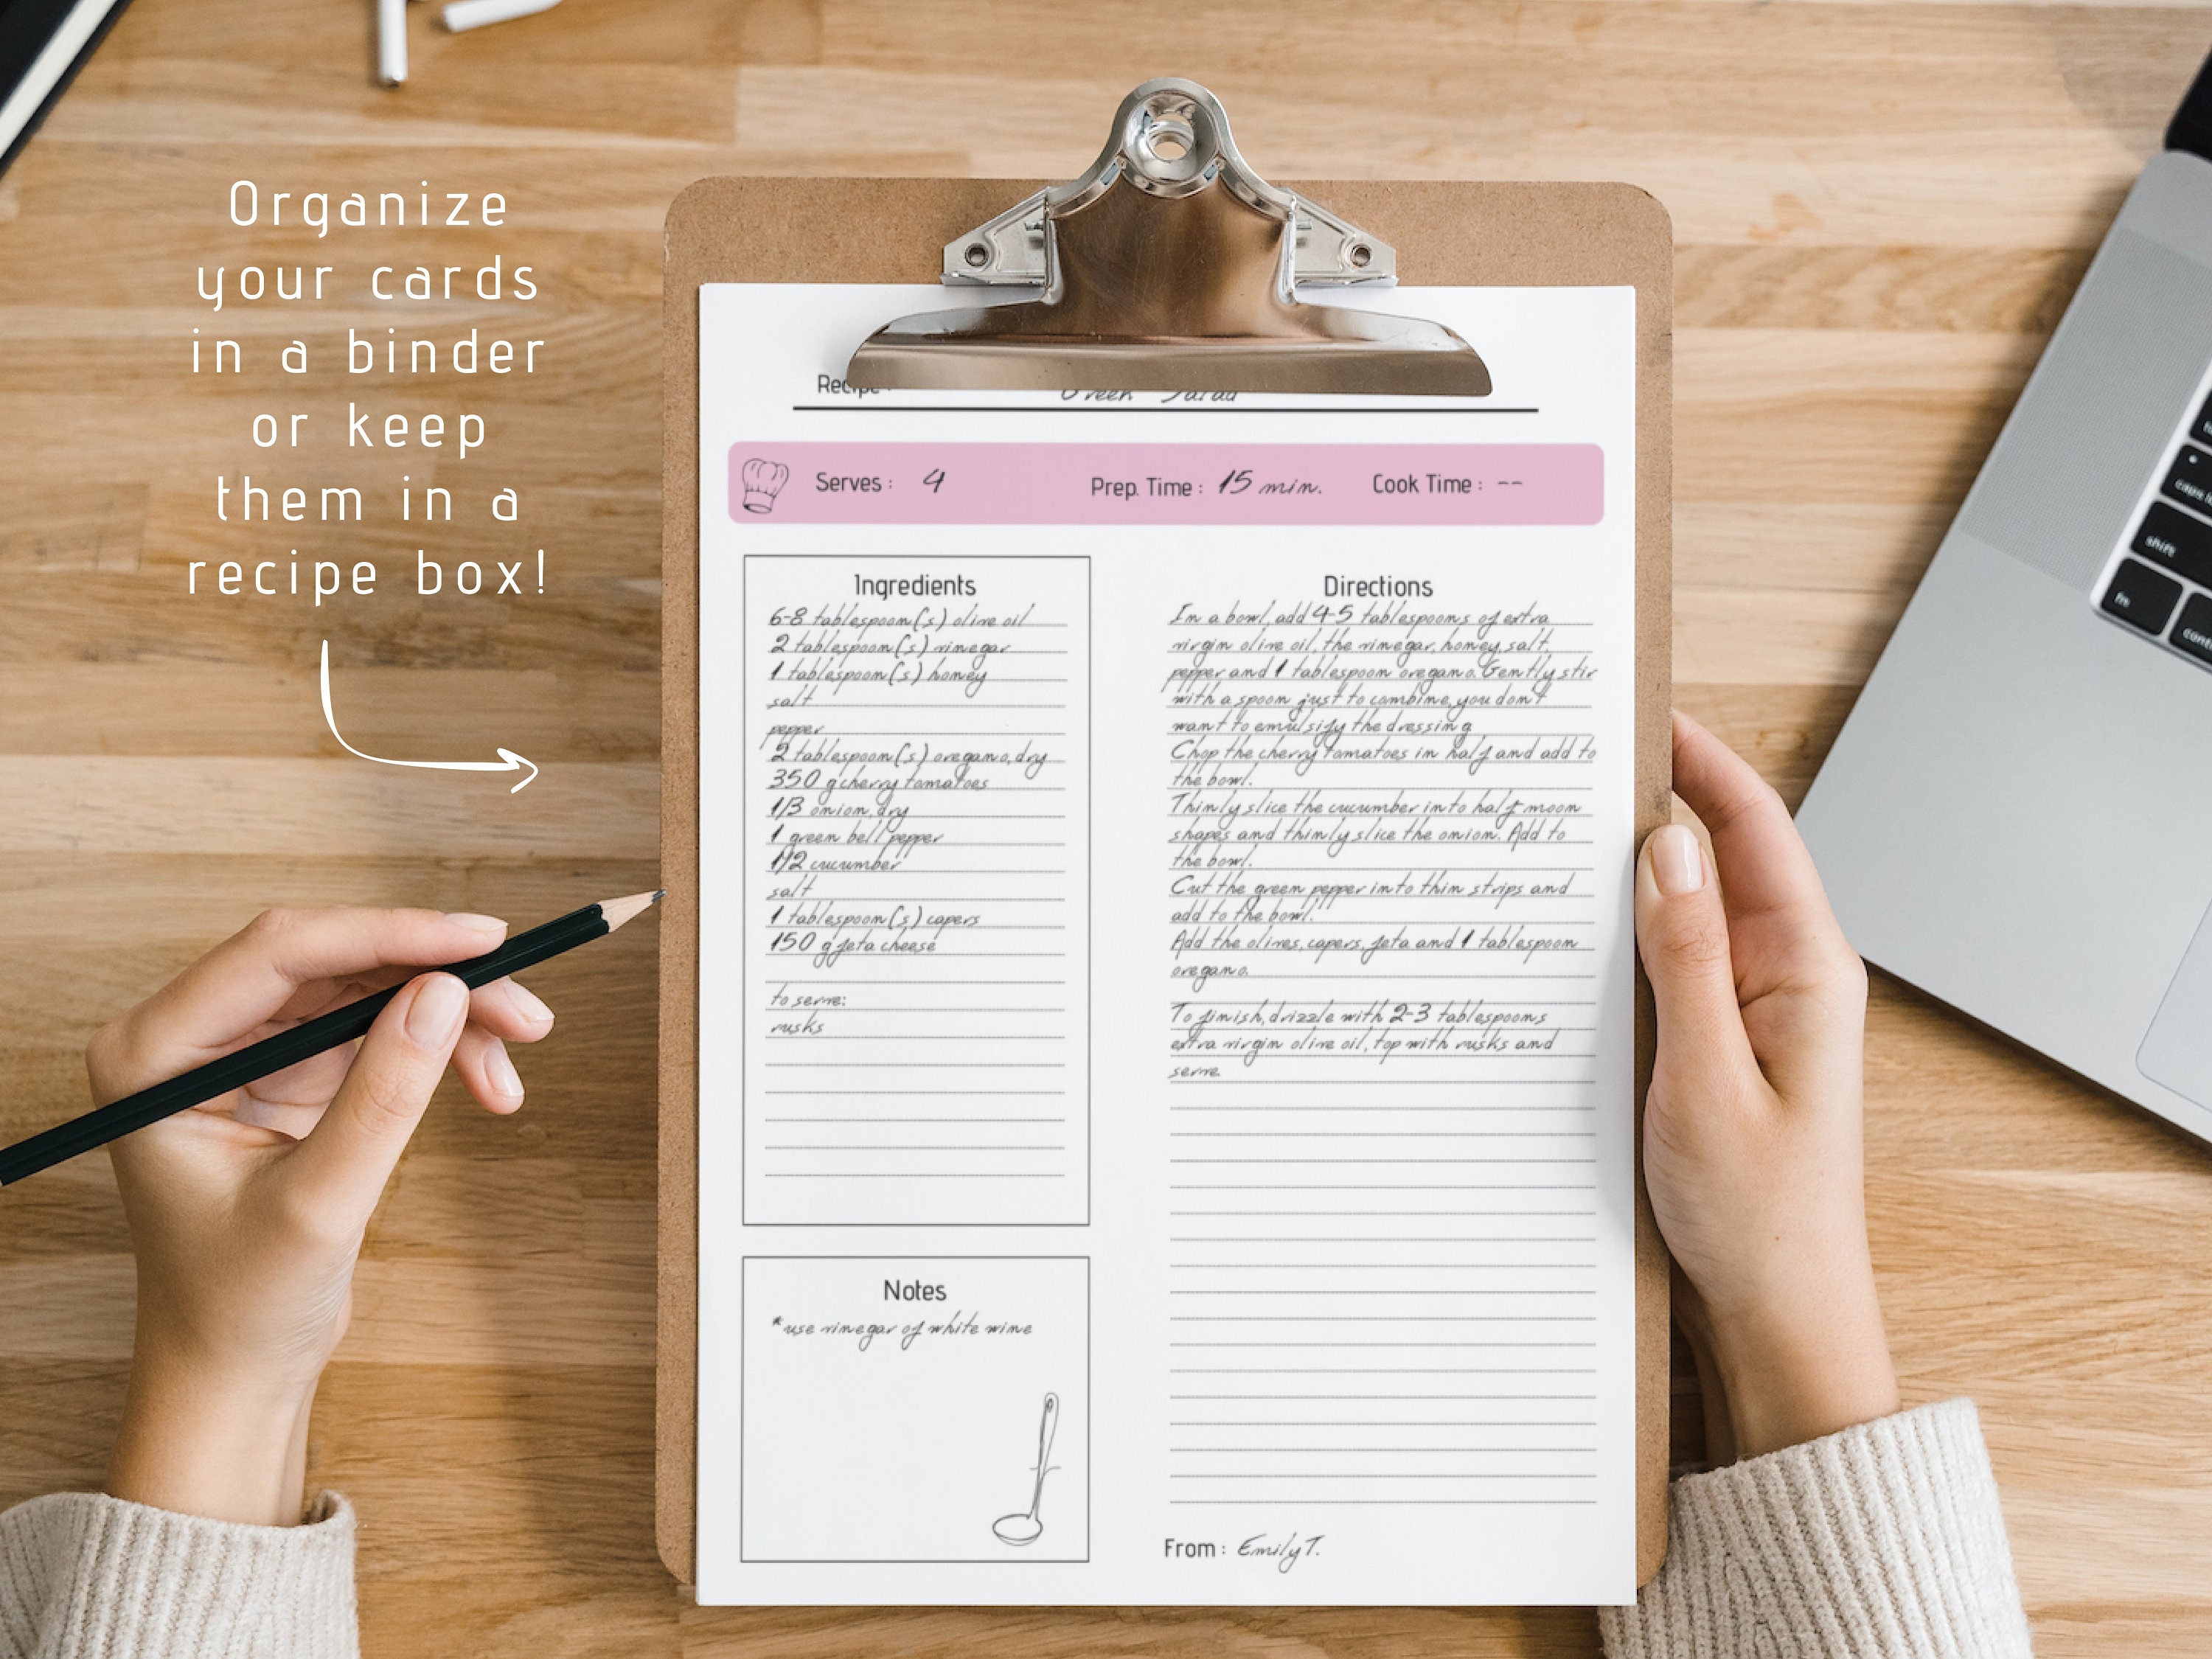 Organize
your cards
in a binder
or keep
them in a
recipe box!
Recipe
Greek Salad
Serves : 4
Prep. Time : 15 min.
Cook Time : --
Ingredients
6-8 tablespoon(s) olive oil
2 tablespoon(s) vinegar
1 tablespoon(s) honey
salt
pepper
2 tablespoon(s) oregano, dry
350 g cherry tomatoes
1/3 onion, dry
1 green bell pepper
1/2 cucumber
salt
1 tablespoon(s) capers
150 g feta cheese
to serve:
rusks
Notes
*use vinegar of white wine
Directions
In a bowl, add 4-5 tablespoons of extra
virgin olive oil, the vinegar, honey, salt,
pepper and 1 tablespoon oregano. Gently stir
with a spoon just to combine, you don't
want to emulsify the dressing
Chop the cherry tomatoes in half and add to
the bowl.
Thinly slice the cucumber into half moon
shapes and thinly slice the onion. Add to
the bowl.
Cut the green pepper into thin strips and
add to the bowl.
Add the olives, capers, feta and 1 tablespoon
oregano.
To finish, drizzle with 2-3 tablespoons
extra virgin olive oil, top with rusks and
serve.
From : Emily T.
shift
fn